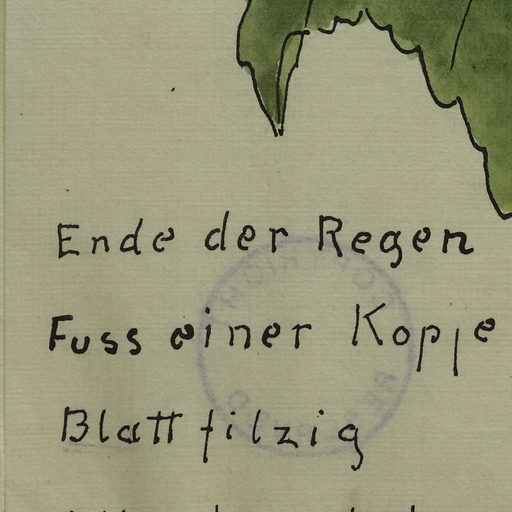 Ende der Regen
Fuss einer Kopje
Blatt filzig